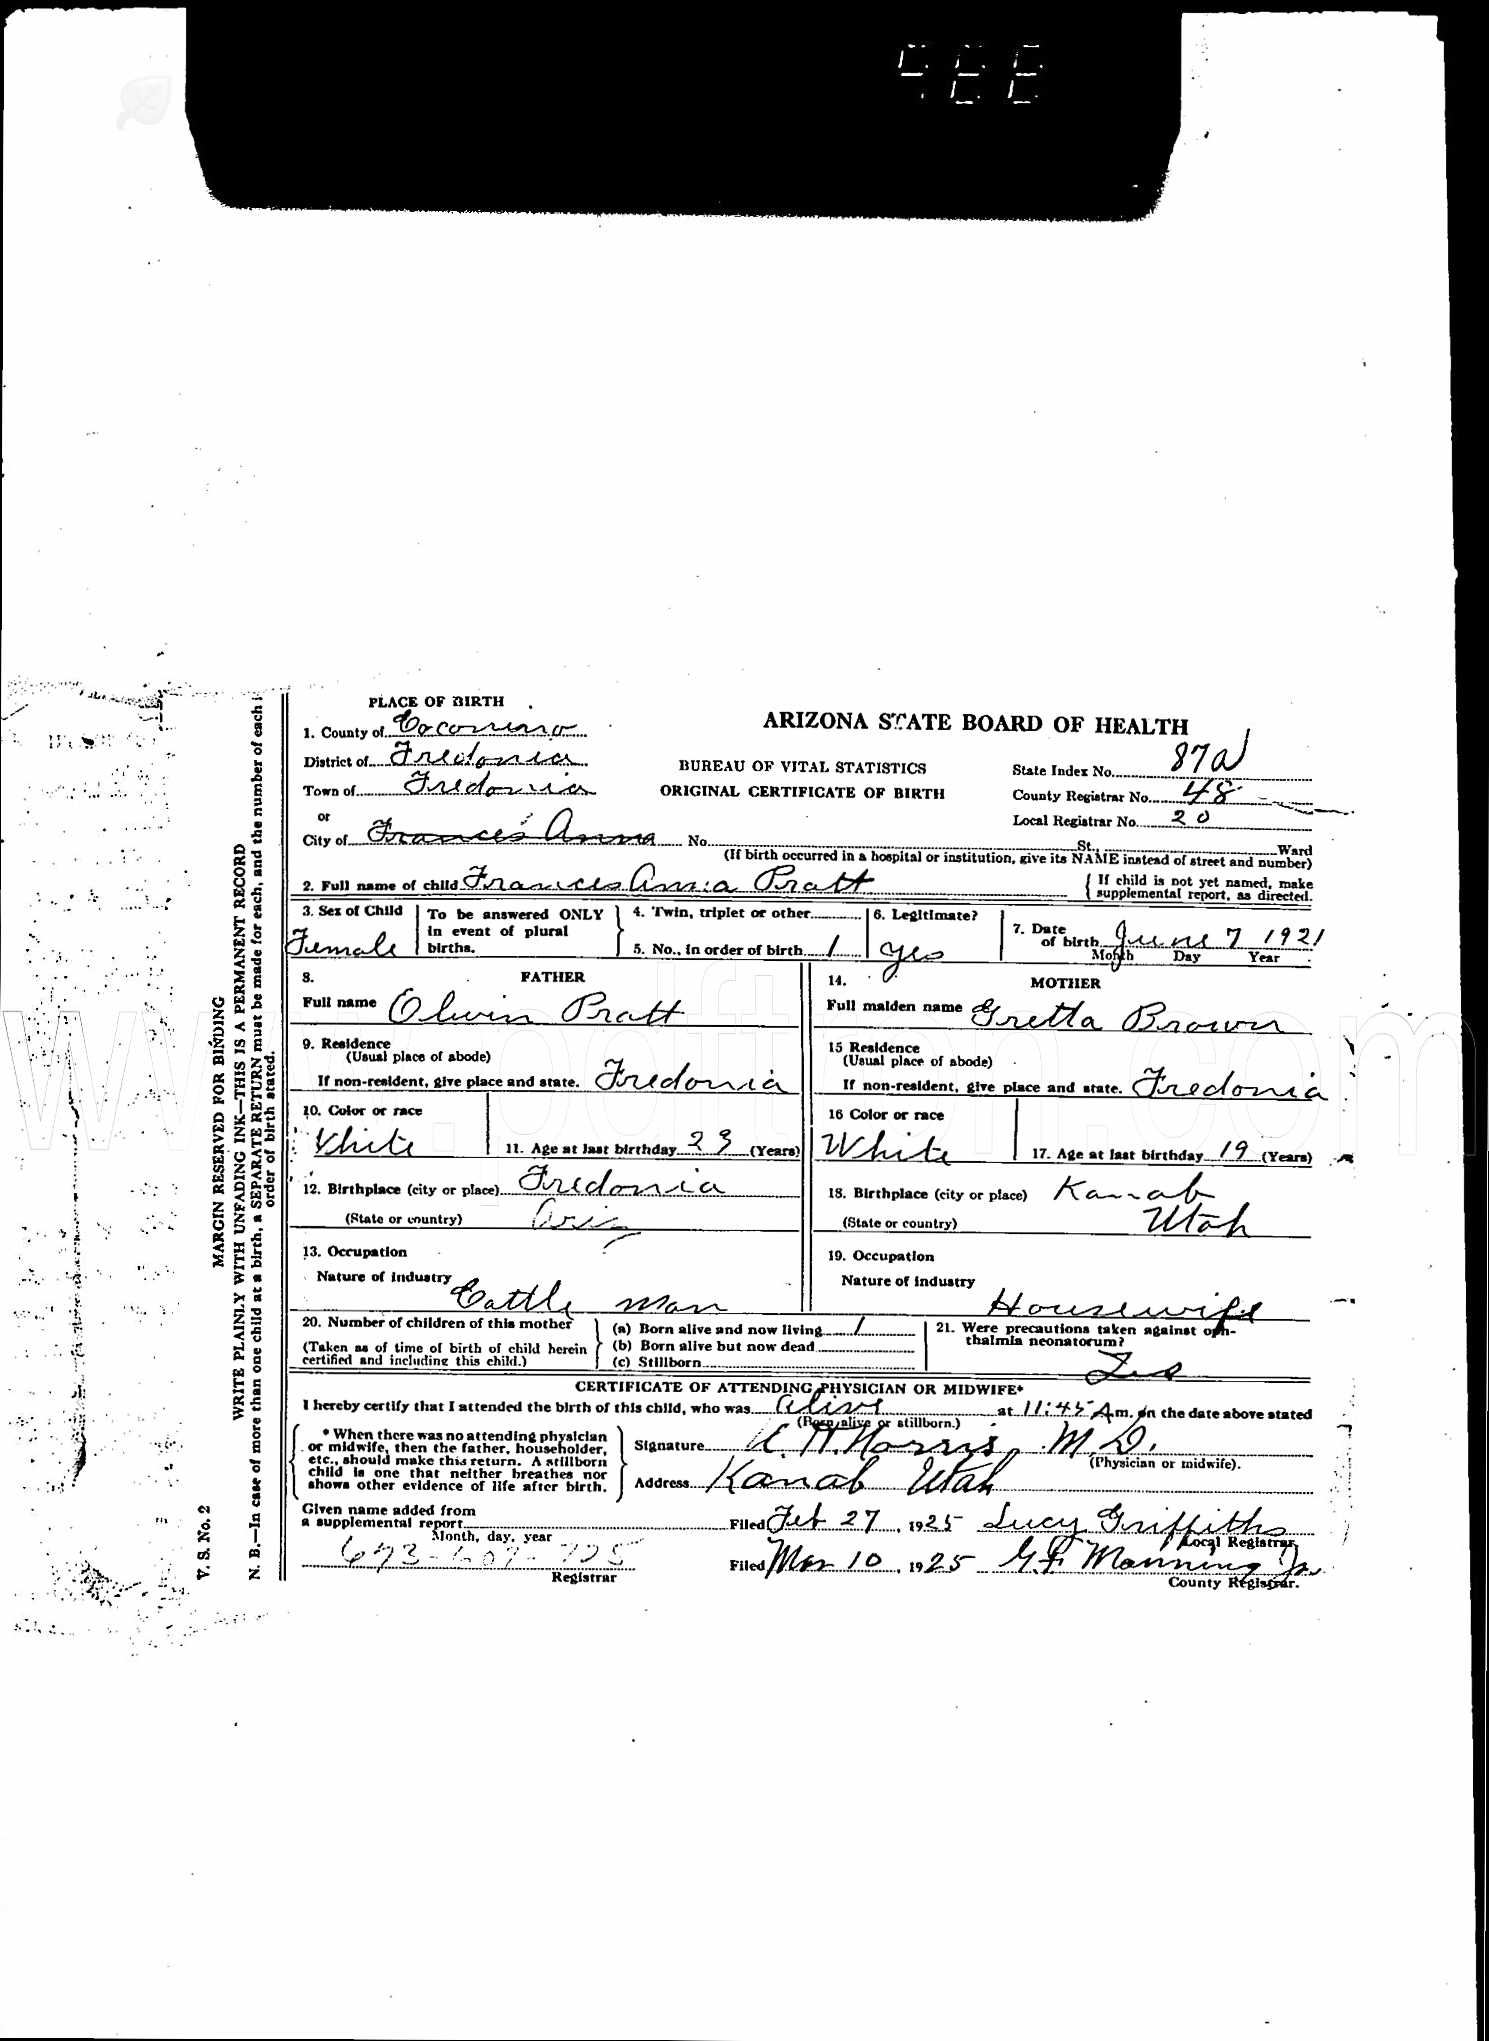 PLACE OF BIRTH
1. County of Coconino
District of Fredonia
Town of Fredonia
or
City of Frances Anna No. St., Ward
(If birth occurred in a hospital or institution, give its NAME instead of street and number)
ARIZONA STATE BOARD OF HEALTH
BUREAU OF VITAL STATISTICS
ORIGINAL CERTIFICATE OF BIRTH
State Index No. 87a
County Registrar No. 48
Local Registrar No. 20
2. Full name of child Frances Anna Pratt { If child is not yet named, make supplemental report, as directed.
3. Sex of Child Female
To be answered ONLY in event of plural births.
4. Twin, triplet or other
5. No., in order of birth 1
6. Legitimate? yes
7. Date of birth June 7 1921
Month Day Year
8. FATHER
Full name Olwin Pratt
9. Residence
(Usual place of abode)
If non-resident, give place and state. Fredonia
10. Color or race White
11. Age at last birthday 23 (Years)
12. Birthplace (city or place) Fredonia
(State or country) Ariz
13. Occupation
Nature of industry Cattle man
14. MOTHER
Full maiden name Gretta Brown
15 Residence
(Usual place of abode)
If non-resident, give place and state. Fredonia
16 Color or race White
17. Age at last birthday 19 (Years)
18. Birthplace (city or place) Kanab
(State or country) Utah
19. Occupation
Nature of industry Housewife
20. Number of children of this mother
(Taken as of time of birth of child herein certified and including this child.)
(a) Born alive and now living 1
(b) Born alive but now dead
(c) Stillborn
21. Were precautions taken against ophthalmia neonatorum? Yes
CERTIFICATE OF ATTENDING PHYSICIAN OR MIDWIFE*
I hereby certify that I attended the birth of this child, who was alive at 11:45 A m. on the date above stated
(Born alive or stillborn.)
* When there was no attending physician
or midwife, then the father, householder,
etc., should make this return. A stillborn
child is one that neither breathes nor
shows other evidence of life after birth.
Signature Norris, M.D.
(Physician or midwife).
Address Kanab Utah
Given name added from
a supplemental report
Month, day, year
Registrar
Filed Feb 27, 1925 Lucy Griffiths
Local Registrar
Filed Mar 10, 1925 G.F. Manning Jr.
County Registrar.
V. S. No. 2
MARGIN RESERVED FOR BINDING
WRITE PLAINLY WITH UNFADING INK—THIS IS A PERMANENT RECORD
N. B.—In case of more than one child at a birth, a SEPARATE RETURN must be made for each, and the number of each in
order of birth stated.